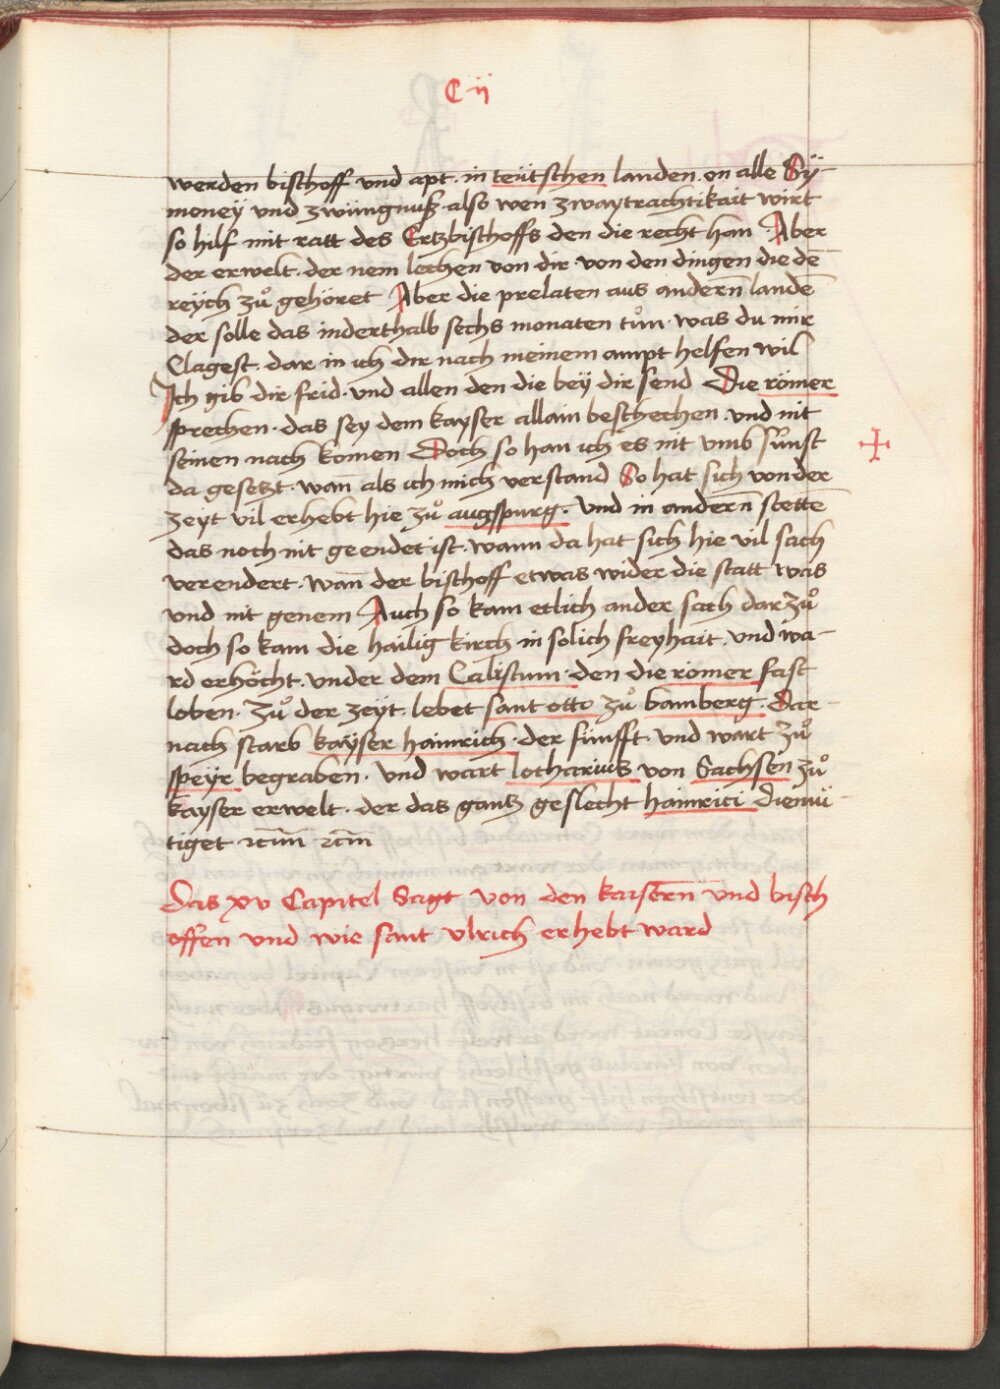 C ij
werden bischoff vnd apt · in teütschen landen · on alle Sÿ-
moneÿ vnd zwüngnuß · also wen zwaytrachtikait wirt
so hilf mit ratt des Ertzbischoffs den die recht han · Aber
der erwelt · der nem lechen von dir von den dingen die dē
reÿch zů gehöret Aber die prelaten aus andern̄ landē
der solle das inderthalb sechs monaten tůn · was du mir
Clagest · dar in ich dir nach meinem ampt helfen wil
Ich gib dir frid · vnd allen den die beÿ dir send Die römer
sprechen · das sey dem kayser allain beschechen · vnd nit
seinen nach komen Doch so han ich es nit vmb sůnst
da gesetzt · wan̄ als ich mich verstand So hat sich von der
zeyt vil erhebt hie zů augspurg · Vnd in andern̄ stettē
das noch nit geendet ist · wann da hat sich hie vil sach
verendert · wan̄ der bischoff etwas wider die statt was
vnd nit genem Auch so kam etlich ander sach dar zů
doch so kam die hailig kirch in solich freyhait · vnd wa-
rd erhöcht · vnder dem Calistum · den die römer fast
loben · Zů der zeyt · lebet sant otto zů bamberg · Dar-
nach starb kaÿser hainrich · der fünfft · vnd wart zů
speÿr begraben · vnd wart lotharius von Sachsen zů
kayser erwelt · der das gantz geslecht hainrici diemü-
tiget
Das xv Capitel Sagt von den kaisern̄ vnd bisch
offen vnd wie sant vlrich erhebt ward